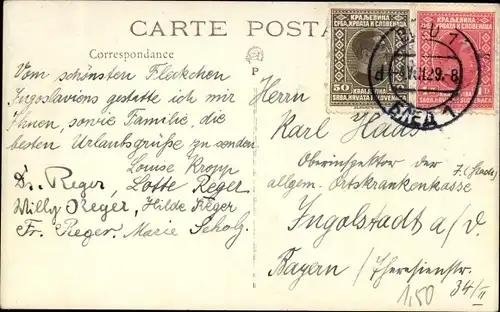 CARTE POSTA
Correspondance
P
Vom schönsten Fleckchen
Jugoslaviens gestatte ich mir
Ihnen, sowie Familie, die
besten Urlaubsgrüße zu senden
Louise Kropp
Dr. Reger, Lotte Reger
Willy Reger, Hilde Reger
Fr. Reger. Marie Scholz.
КРАЉЕВИНА
СРБА, ХРВАТА И СЛОВЕНАЦА
50
KRALJEVINA
SRBA, HRVATA I SLOVENACA
КРАЉЕВИНА
СРБА, ХРВАТА И СЛОВЕНАЦА
KRALJEVINA
BLED 1
29.-8
БЛЕД 1
Herrn
Karl Haas
Oberinspektor der
allgem. Ortskrankenkasse
Ingolstadt a/d.
Bayern / Theresienstr.
34/II
1,50